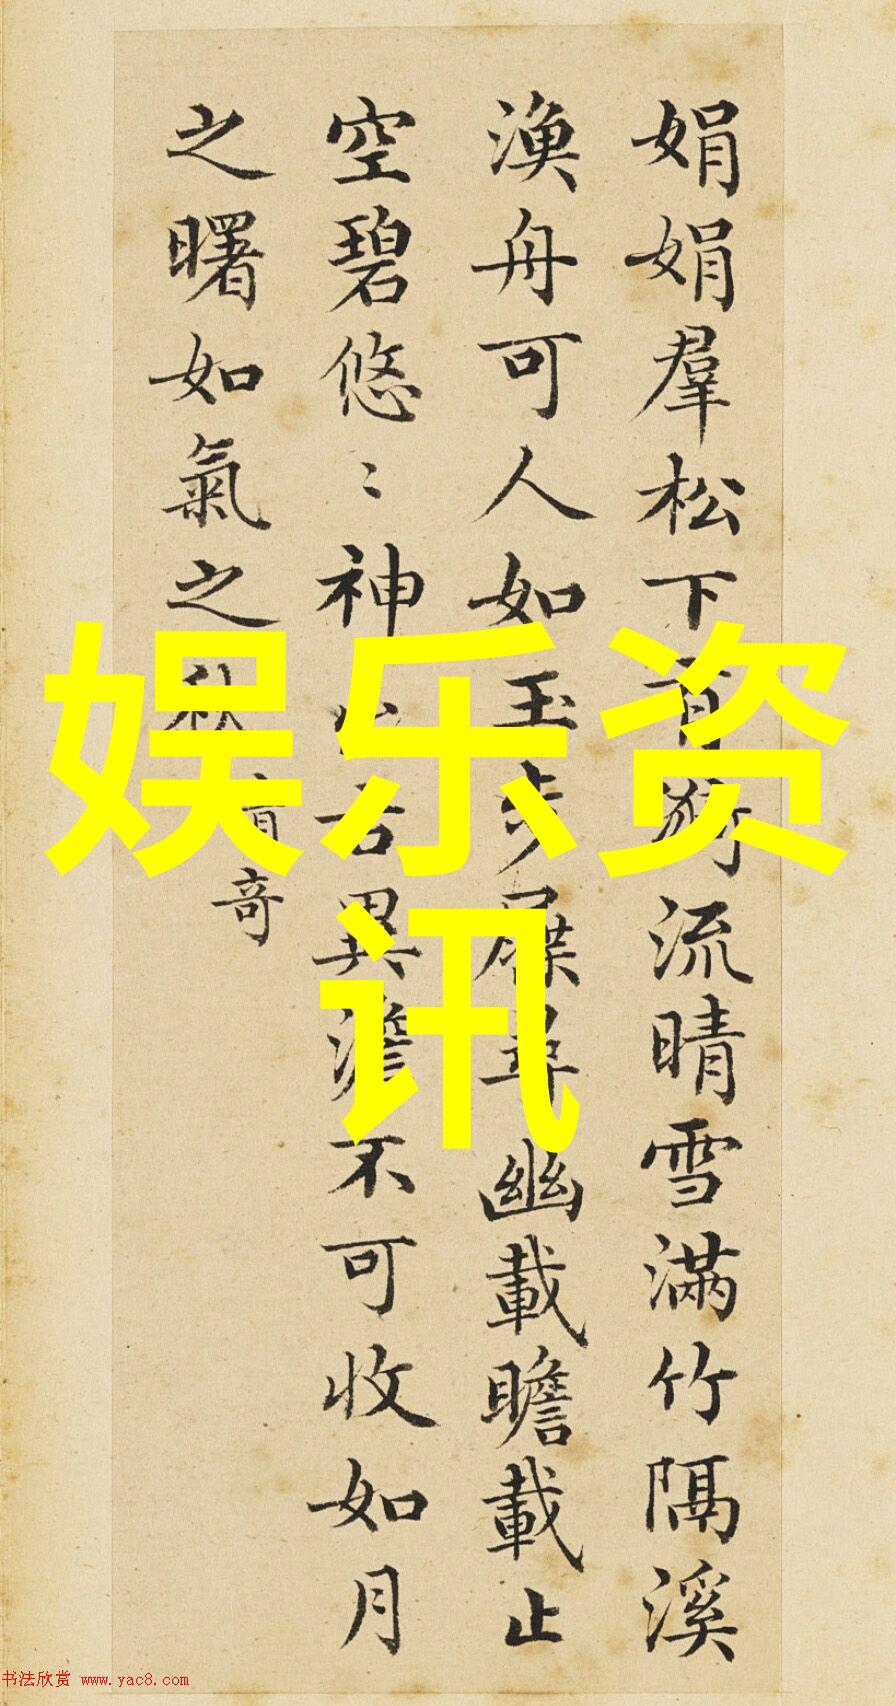 娟娟羣松下有流晴雪滿竹隔溪
漁舟可人如玉步屧尋幽載瞻載止
空碧悠〻神古異澹不可收如月
之曙如氣之秋
奇
娱乐资
讯
书法欣赏 www.yac8.com